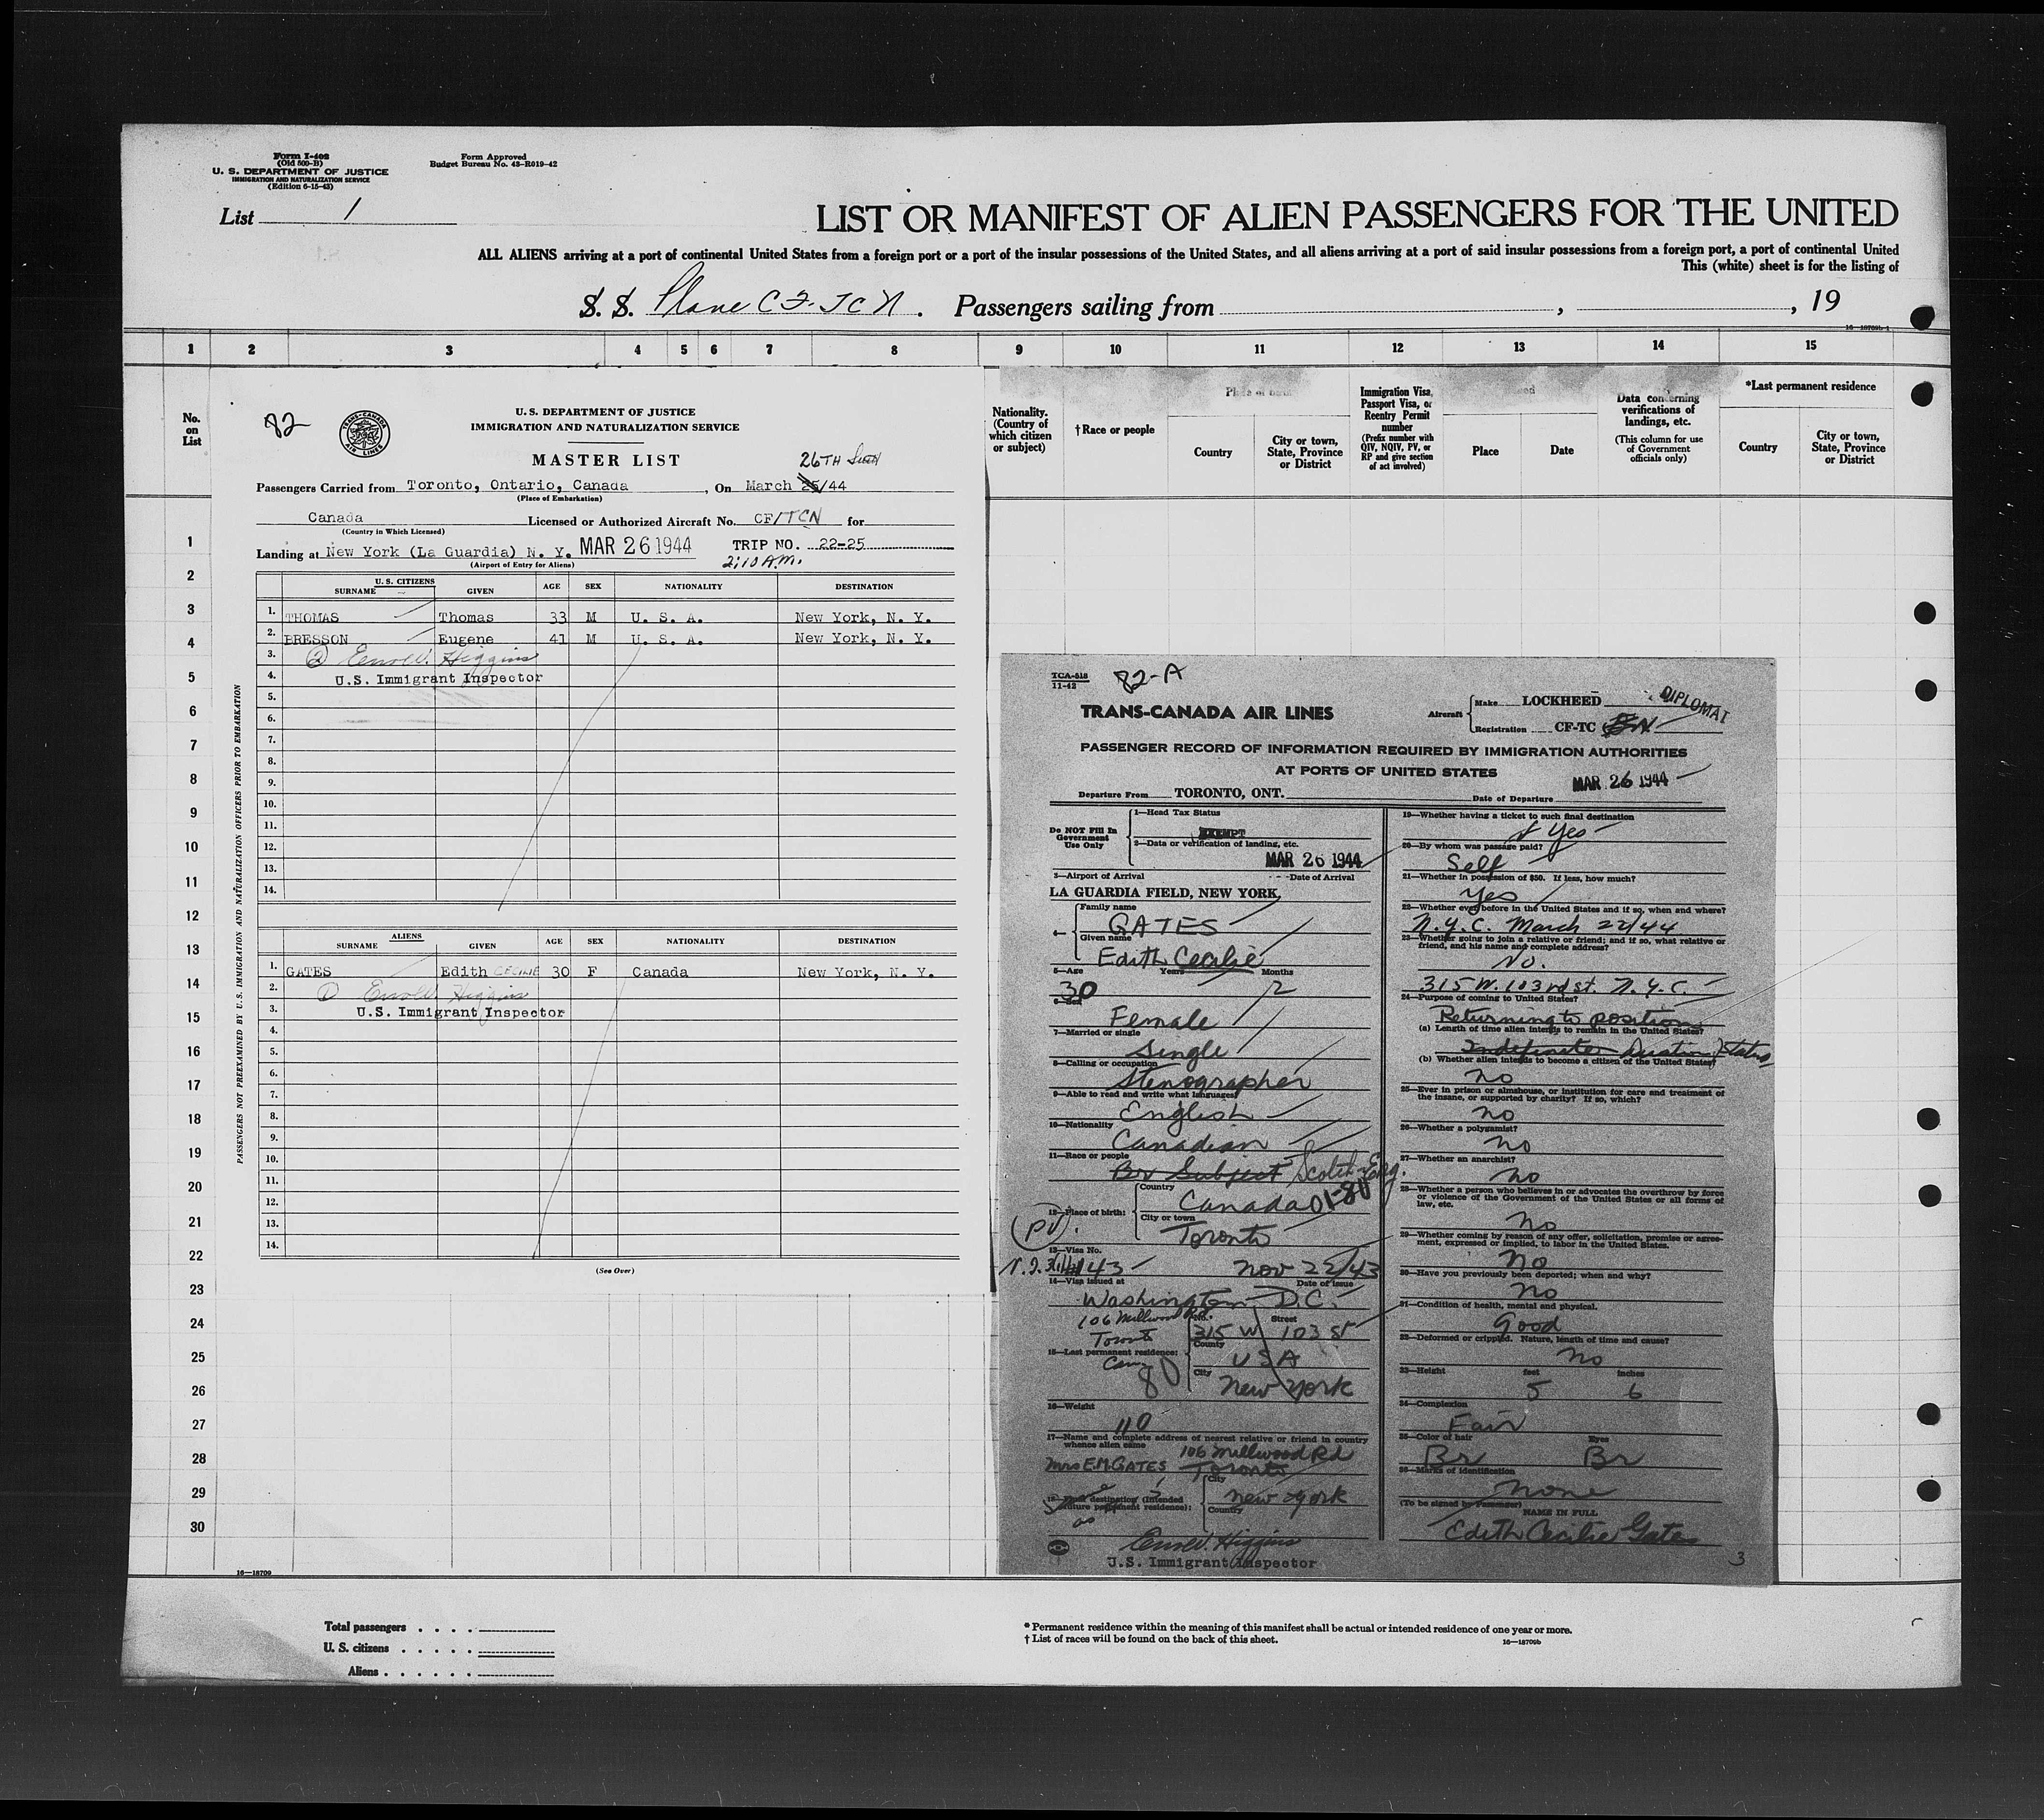 Form I-402
(Old 500-B)
U. S. DEPARTMENT OF JUSTICE
IMMIGRATION AND NATURALIZATION SERVICE
(Edition 6-15-43)
Form Approved
Budget Bureau No. 43-R019-42
List 1
LIST OR MANIFEST OF ALIEN PASSENGERS FOR THE UNITED
ALL ALIENS arriving at a port of continental United States from a foreign port or a port of the insular possessions of the United States, and all aliens arriving at a port of said insular possessions from a foreign port, a port of continental United
This (white) sheet is for the listing of
S. S. Plane CF-TCN. Passengers sailing from , , 19
16—18709b-1
1 2 3 4 5 6 7 8 9 10 11 12 13 14 15
No. on List
Nationality. (Country of which citizen or subject)
†Race or people
Place of birth
Country
City or town, State, Province or District
Immigration Visa, Passport Visa, or Reentry Permit number
(Prefix number with QIV, NQIV, PV, or RP and give section of act involved)
Place
Date
Data concerning verifications of landings, etc.
(This column for use of Government officials only)
*Last permanent residence
Country
City or town, State, Province or District
1
2
3
4
5
6
7
8
9
10
11
12
13
14
15
16
17
18
19
20
21
22
23
24
25
26
27
28
29
30
PASSENGERS NOT PREEXAMINED BY U. S. IMMIGRATION AND NATURALIZATION OFFICERS PRIOR TO EMBARKATION
82
TRANS-CANADA AIR LINES
U. S. DEPARTMENT OF JUSTICE
IMMIGRATION AND NATURALIZATION SERVICE
MASTER LIST
26TH
Passengers Carried from Toronto, Ontario, Canada, On March 25/44
(Place of Embarkation)
Canada Licensed or Authorized Aircraft No. CF/TCN for
(Country in Which Licensed)
Landing at New York (La Guardia) N. Y. MAR 26 1944 TRIP NO. 22-25
(Airport of Entry for Aliens) 2:10 A.M.
U. S. CITIZENS
SURNAME GIVEN AGE SEX NATIONALITY DESTINATION
1. THOMAS Thomas 33 M U. S. A. New York, N. Y.
2. BRESSON Eugene 41 M U. S. A. New York, N. Y.
3. 2 Higgins
4. U.S. Immigrant Inspector
5.
6.
7.
8.
9.
10.
11.
12.
13.
14.
ALIENS
SURNAME GIVEN AGE SEX NATIONALITY DESTINATION
1. GATES Edith CECILIE 30 F Canada New York, N. Y.
2. 1 Higgins
3. U.S. Immigrant Inspector
4.
5.
6.
7.
8.
9.
10.
11.
12.
13.
14.
(See Over)
TCA-518
11-42
82-A
TRANS-CANADA AIR LINES
Aircraft Make LOCKHEED
Registration CF-TC N
DIPLOMAT
PASSENGER RECORD OF INFORMATION REQUIRED BY IMMIGRATION AUTHORITIES
AT PORTS OF UNITED STATES
MAR 26 1944
Departure From TORONTO, ONT. Date of Departure
Do NOT Fill In Government Use Only
1—Head Tax Status
EXEMPT
2—Data or verification of landing, etc.
MAR 26 1944
3—Airport of Arrival Date of Arrival
LA GUARDIA FIELD, NEW YORK,
4— Family name
GATES
Given name
Edith Cecilie
5—Age Years Months
30 2
6—Sex
Female
7—Married or single
Single
8—Calling or occupation
Stenographer
9—Able to read and write what languages?
English
10—Nationality
Canadian
11—Race or people
Br Subject Scotch-Eng.
12—Place of birth: Country
Canada 01-80
City or town
Toronto
(PV)
13—Visa No.
43 Nov 22/43
Date of issue
14—Visa issued at
Washington D.C.
106 Millwood Rd.
Toronto
Can
80
15—Last permanent residence:
No. Street
315 W 103 St
County
USA
City
New York
16—Weight
110
17—Name and complete address of nearest relative or friend in country whence alien came
106 Millwood Rd
Mrs E.M. GATES, Toronto
18—Final destination (Intended future permanent residence):
City
New York
Country
Higgins
U.S. Immigrant Inspector
19—Whether having a ticket to such final destination
Yes
20—By whom was passage paid?
Self
21—Whether in possession of $50. If less, how much?
Yes
22—Whether ever before in the United States and if so, when and where?
N.Y.C. March 22/44
23—Whether going to join a relative or friend; and if so, what relative or friend, and his name and complete address?
No.
315 W. 103rd St. N.Y.C.
24—Purpose of coming to United States?
Returning to position
(a) Length of time alien intends to remain in the United States?
Indefinite Duration status
(b) Whether alien intends to become a citizen of the United States?
no
25—Ever in prison or almshouse, or institution for care and treatment of the insane, or supported by charity? If so, which?
no
26—Whether a polygamist?
no
27—Whether an anarchist?
no
28—Whether a person who believes in or advocates the overthrow by force or violence of the Government of the United States or all forms of law, etc.
no
29—Whether coming by reason of any offer, solicitation, promise or agreement, expressed or implied, to labor in the United States.
No
30—Have you previously been deported; when and why?
No
31—Condition of health, mental and physical.
Good
32—Deformed or crippled. Nature, length of time and cause?
no
33—Height feet inches
5 6
34—Complexion
Fair
35—Color of hair Eyes
Br Br
36—Marks of identification
none
(To be signed by passenger)
NAME IN FULL
Edith Cecilie Gates
3
16—18709
Total passengers
U. S. citizens
Aliens
* Permanent residence within the meaning of this manifest shall be actual or intended residence of one year or more.
† List of races will be found on the back of this sheet.
16—18709b